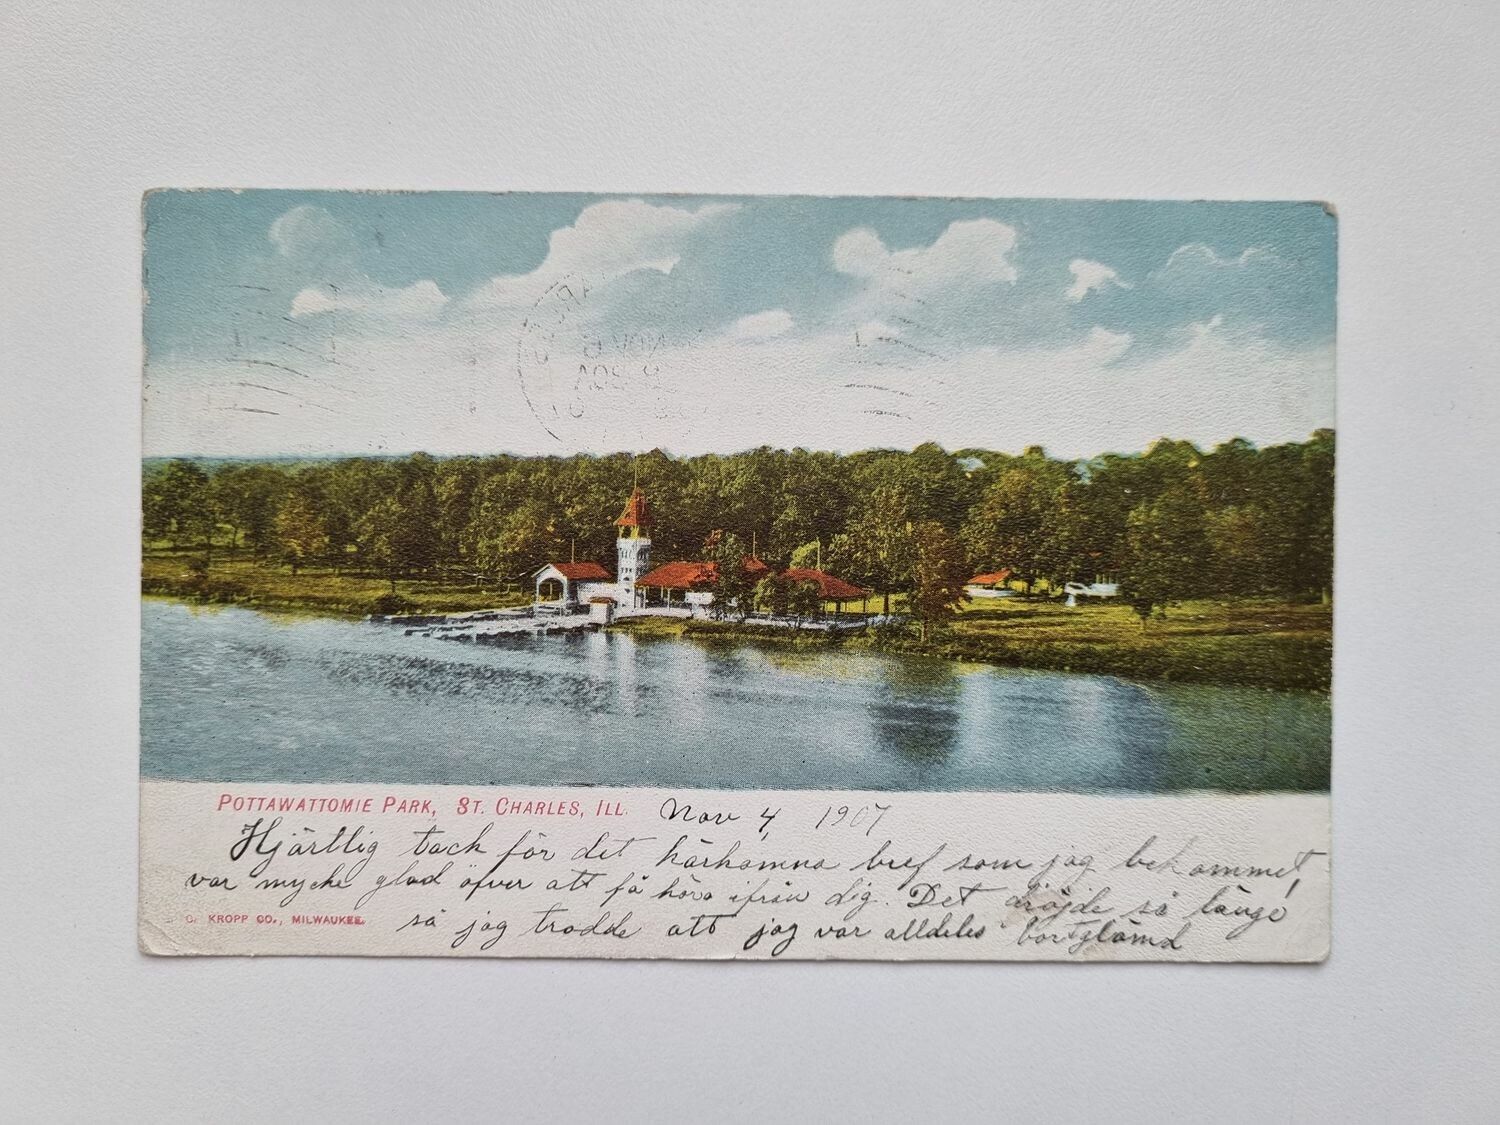 POTTAWATTOMIE PARK, ST. CHARLES, ILL. Nov 4 1907
Hjärtlig tack för det härkomna bref som jag bekommet,
var mycke glad öfver att få höra ifrån dig. Det dröjde så länge
C. KROPP CO., MILWAUKEE. så jag trodde att jag var alldeles bortglömd
NOV 6